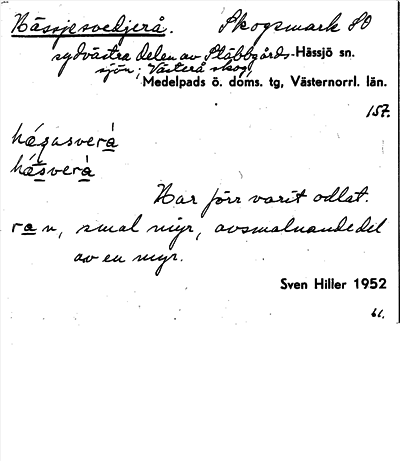 Hässjesvedjerå. Skogsmark SO
sydvästra delen av Stäbbgårds-Hässjö sn.
sjön; Västerå skog
Medelpads ö. doms. tg, Västernorrl. län.
157.
hǽgasverà
hǽsverà
Har förr varit odlat.
ran, smal myr, avsmalnande del
av en myr.
Sven Hiller 1952